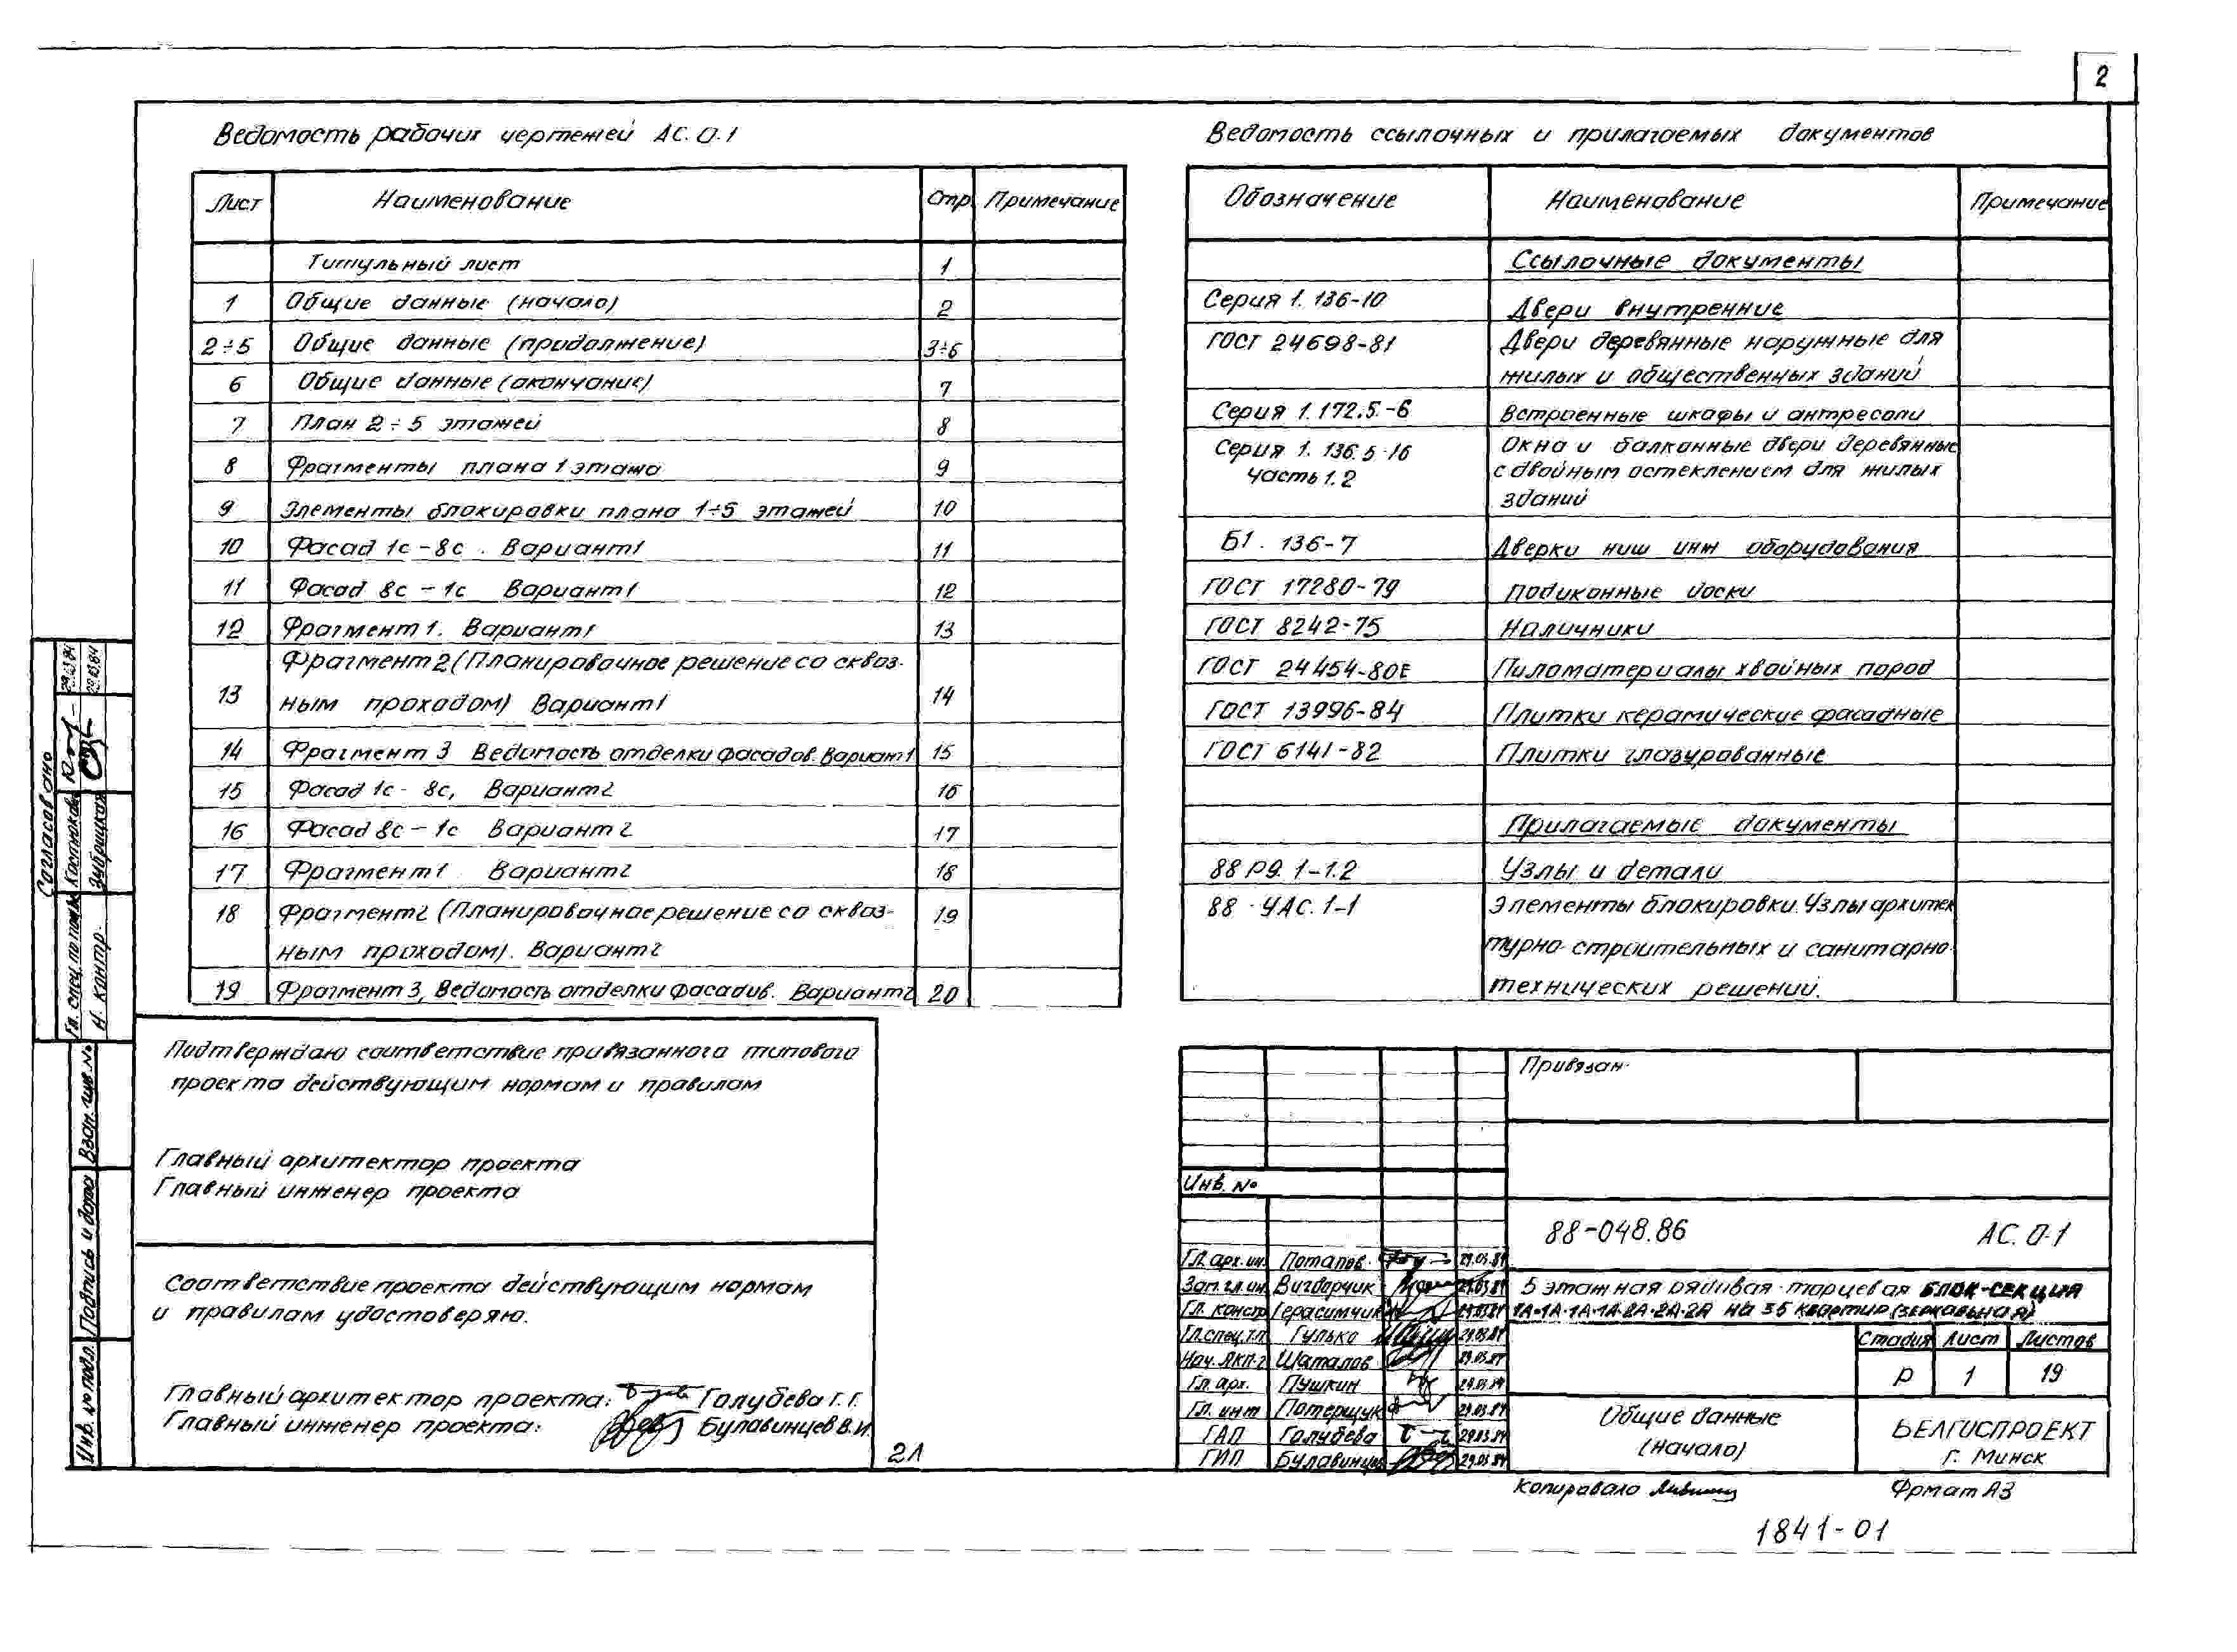 2
Ведомость рабочих чертежей АС.0.1
Лист Наименование Стр. Примечание
Титульный лист 1
1 Общие данные (начало) 2
2÷5 Общие данные (продолжение) 3÷6
6 Общие данные (окончание) 7
7 План 2÷5 этажей 8
8 Фрагменты плана 1 этажа 9
9 Элементы блокировки плана 1÷5 этажей 10
10 Фасад 1с-8с. Вариант 1 11
11 Фасад 8с-1с Вариант 1 12
12 Фрагмент 1. Вариант 1 13
Фрагмент 2 (Планировочное решение со сквоз-
13 ным проходом) Вариант 1 14
14 Фрагмент 3 Ведомость отделки фасадов. Вариант 1 15
15 Фасад 1с-8с, Вариант 2 16
16 Фасад 8с-1с Вариант 2 17
17 Фрагмент 1 Вариант 2 18
18 Фрагмент 2 (Планировочное решение со сквоз- 19
ным проходом). Вариант 2
19 Фрагмент 3, Ведомость отделки фасадов. Вариант 2 20
Ведомость ссылочных и прилагаемых документов
Обозначение Наименование Примечание
Ссылочные документы
Серия 1.136-10 Двери внутренние
ГОСТ 24698-81 Двери деревянные наружные для
жилых и общественных зданий
Серия 1.172.5-6 Встроенные шкафы и антресоли
Серия 1.136.5-16 Окна и балконные двери деревянные
часть 1.2 с двойным остеклением для жилых
зданий
Б1.136-7 Дверки ниш инж оборудования
ГОСТ 17280-79 Подиконные доски
ГОСТ 8242-75 Наличники
ГОСТ 24454-80Е Пиломатериалы хвойных пород
ГОСТ 13996-84 Плитки керамические фасадные
ГОСТ 6141-82 Плитки глазурованные
Прилагаемые документы
88 РД. 1-1.2 Узлы и детали
88 УАС. 1-1 Элементы блокировки. Узлы архитек
турно-строительных и санитарно
технических решений.
Согласовано
Гл. спец. по Костюкова 29.03.84
Н. контр. Зубрицкая 29.03.84
Взам. инв. №
Подпись и дата
Инв. № подл.
Подтверждаю соответствие привязанного типового
проекта действующим нормам и правилам
Главный архитектор проекта
Главный инженер проекта
Соответствие проекта действующим нормам
и правилам удостоверяю.
Главный архитектор проекта: Голубева Г.Г.
Главный инженер проекта: Булавинцев В.И.
2Л
Привязан
Инв. №
88-048.86 АС.0.1
Гл. арх. ин. Потапов 29.03.84
Зам. гл. ин. Вигдорчик 29.03.84
Гл. констр Герасимчик 29.03.84
Гл. спец. т.п. Гулько 29.03.84
Нач. АКП-2 Шаталов 29.03.84
Гл. арх. Пушкин 29.03.84
Гл. инж Потерщук 29.03.84
ГАП Голубева 29.03.84
ГИП Булавинцев 29.03.84
5 этажная рядовая-торцевая БЛОК-СЕКЦИЯ
1А-1А-1А-1А-2А-2А-2А на 35 квартир (зеркальная)
Стадия Лист Листов
Р 1 19
Общие данные
(начало)
БЕЛГИСПРОЕКТ
г. Минск
Копировало Формат А3
1841-01